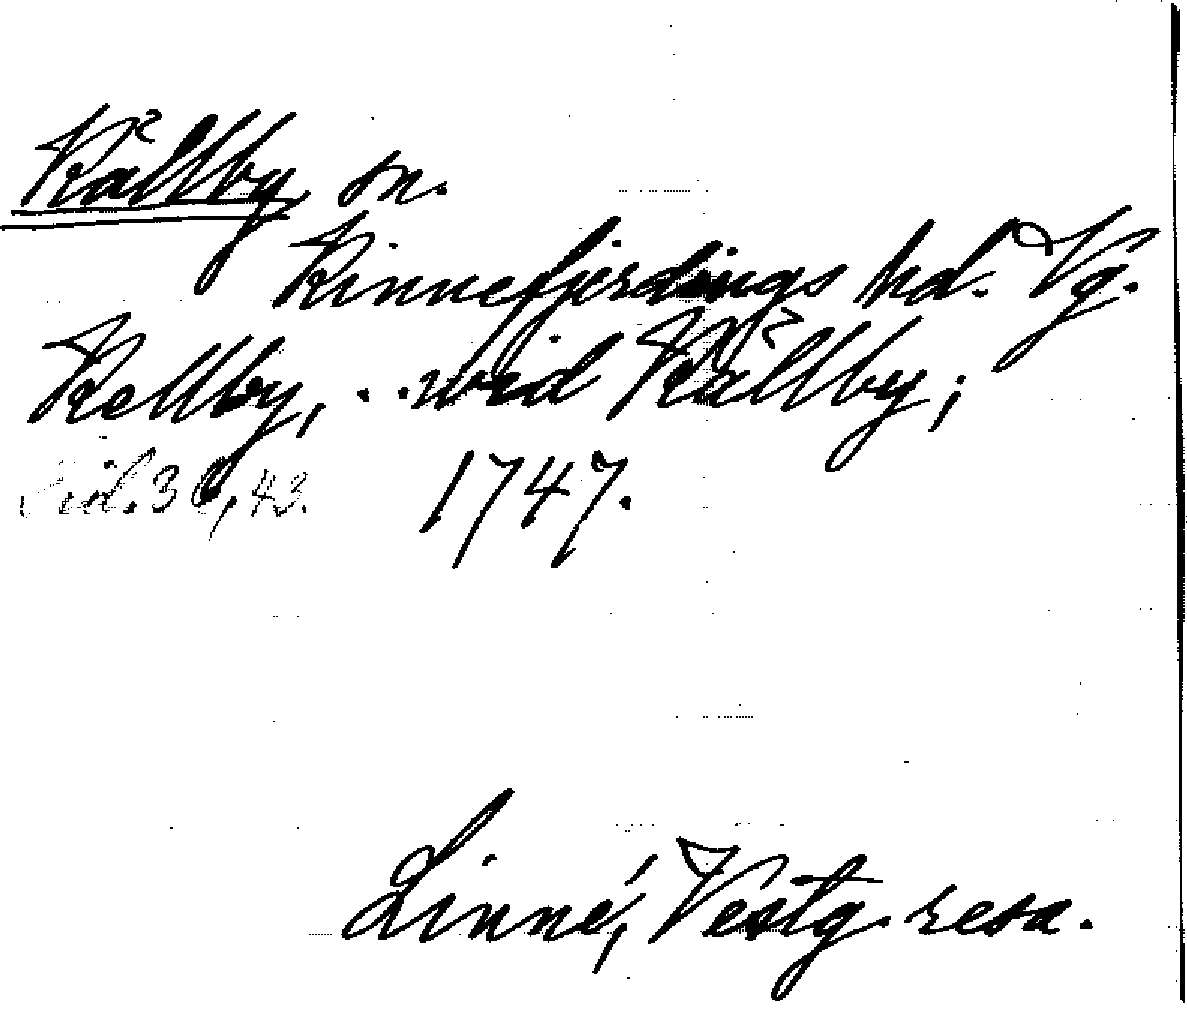 Källby sn.
Kinnefjerdings hd. Vg.
Kellby, . . wid Källby;
sid. 36, 43. 1747.
Linné, Vestg. resa.